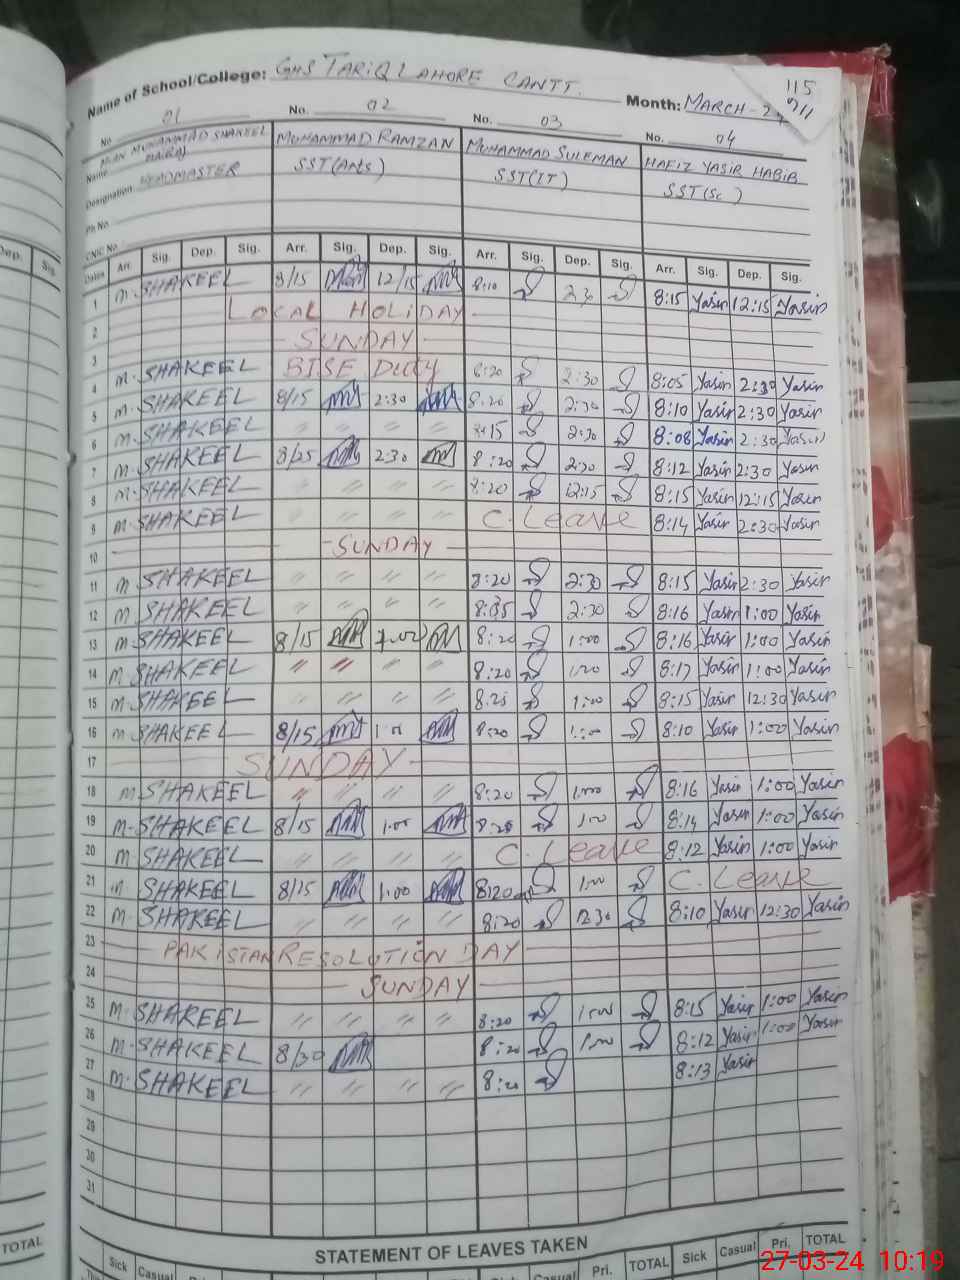 115
711
Name of School/College: GHS TARIQ LAHORE CANTT. Month: MARCH-24
No. 01 No. 02 No. 03 No. 04
Name MIAN MUHAMMAD SHAKEEL MUHAMMAD RAMZAN MUHAMMAD SULEMAN HAFIZ YASIR HABIB
Designation HEADMASTER SST(Arts) SST(IT) SST(Sc)
Ph No.
CNIC No.
Dates Arr. Sig. Dep. Sig. Arr. Sig. Dep. Sig. Arr. Sig. Dep. Sig. Arr. Sig. Dep. Sig.
1 M. SHAKEEL 8/15 12/15 8:10 2:30 8:15 Yasir 12:15 Yasir
2 LOCAL HOLIDAY
3 SUNDAY
4 M. SHAKEEL BISE Duty 8:20 2:30 8:05 Yasir 2:30 Yasir
5 M. SHAKEEL 8/15 2:30 8:20 2:30 8:10 Yasir 2:30 Yasir
6 M. SHAKEEL 〃 〃 〃 〃 8:15 2:30 8:08 Yasir 2:30 Yasir
7 M. SHAKEEL 8/25 2:30 8:20 2:30 8:12 Yasir 2:30 Yasir
8 M. SHAKEEL 〃 〃 〃 8:20 12:15 8:15 Yasir 12:15 Yasir
9 M. SHAKEEL 〃 〃 〃 C. Leave 8:14 Yasir 2:30 Yasir
10 SUNDAY
11 M. SHAKEEL 〃 〃 〃 〃 8:20 2:30 8:15 Yasir 2:30 Yasir
12 M. SHAKEEL 〃 〃 〃 〃 2:30 8:16 Yasir 1:00 Yasir
13 M. SHAKEEL 8/15 1:00 8:20 1:00 8:16 Yasir 1:00 Yasir
14 M. SHAKEEL 〃 〃 〃 〃 8:20 1:00 8:17 Yasir 1:00 Yasir
15 M. SHAKEEL 〃 〃 〃 〃 1:00 8:15 Yasir 12:30 Yasir
16 M. SHAKEEL 8/15 8:20 1:00 8:10 Yasir 1:00 Yasir
17 SUNDAY
18 M. SHAKEEL 〃 〃 〃 〃 8:20 1:00 8:16 Yasir 1:00 Yasir
19 M. SHAKEEL 8/15 1:00 8:20 1:00 8:14 Yasir 1:00 Yasir
20 M. SHAKEEL 〃 〃 〃 〃 C. Leave 8:12 Yasir 1:00 Yasir
21 M. SHAKEEL 8/15 1:00 8:20 1:00 C. Leave
22 M. SHAKEEL 〃 〃 〃 〃 8:20 12:30 8:10 Yasir 12:30 Yasir
23 PAKISTAN RESOLUTION DAY
24 SUNDAY
25 M. SHAKEEL 〃 〃 〃 〃 8:20 1:00 8:15 Yasir 1:00 Yasir
26 M. SHAKEEL 8/30 8:20 1:00 8:12 Yasir 1:00 Yasir
27 M. SHAKEEL 〃 〃 〃 〃 8:20 8:13 Yasir
28
29
30
31
STATEMENT OF LEAVES TAKEN
TOTAL Sick Casual Sick Casual Pri. TOTAL Sick Casual Pri. TOTAL
27-03-24 10:19